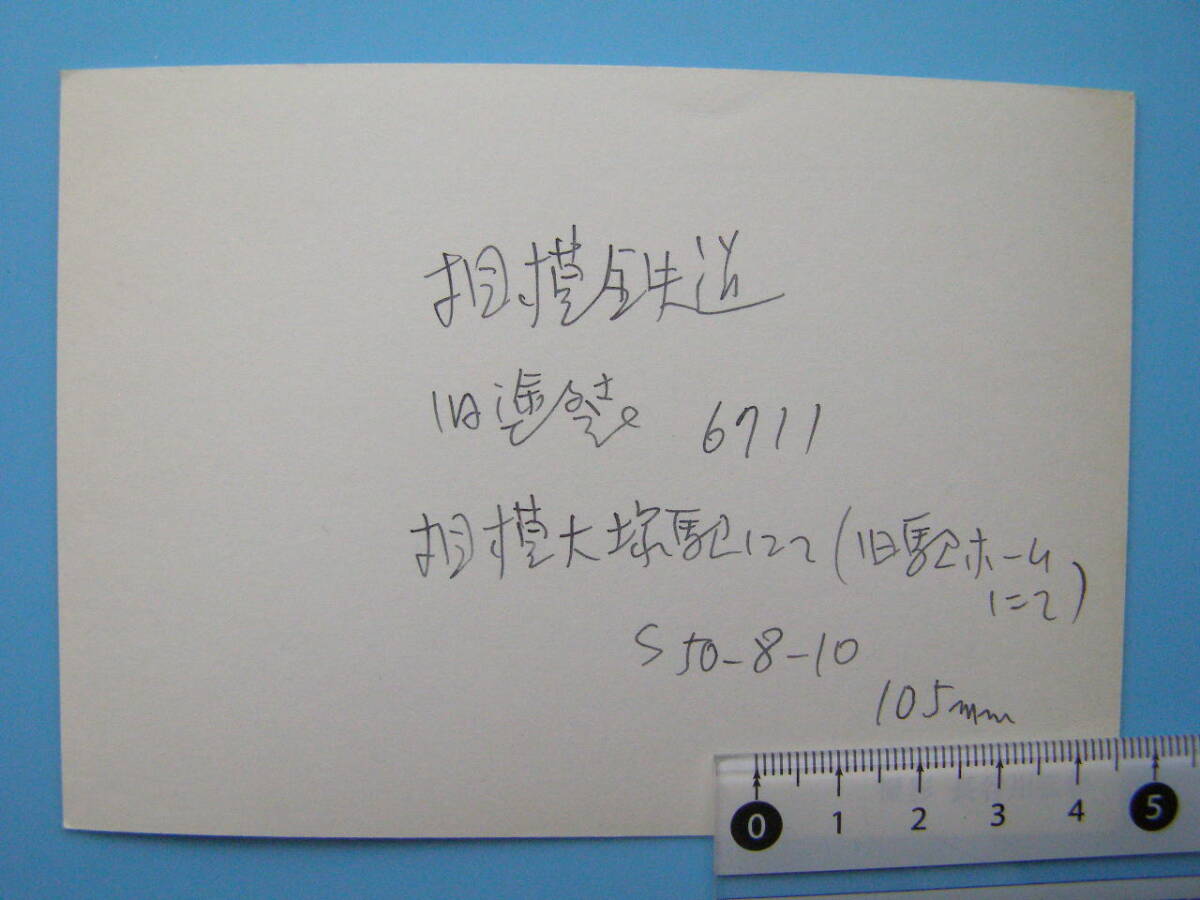 相模鉄道
旧塗装 6711
相模大塚駅にて(旧駅ホーム
にて)
S50-8-10
105mm
0 1 2 3 4 5